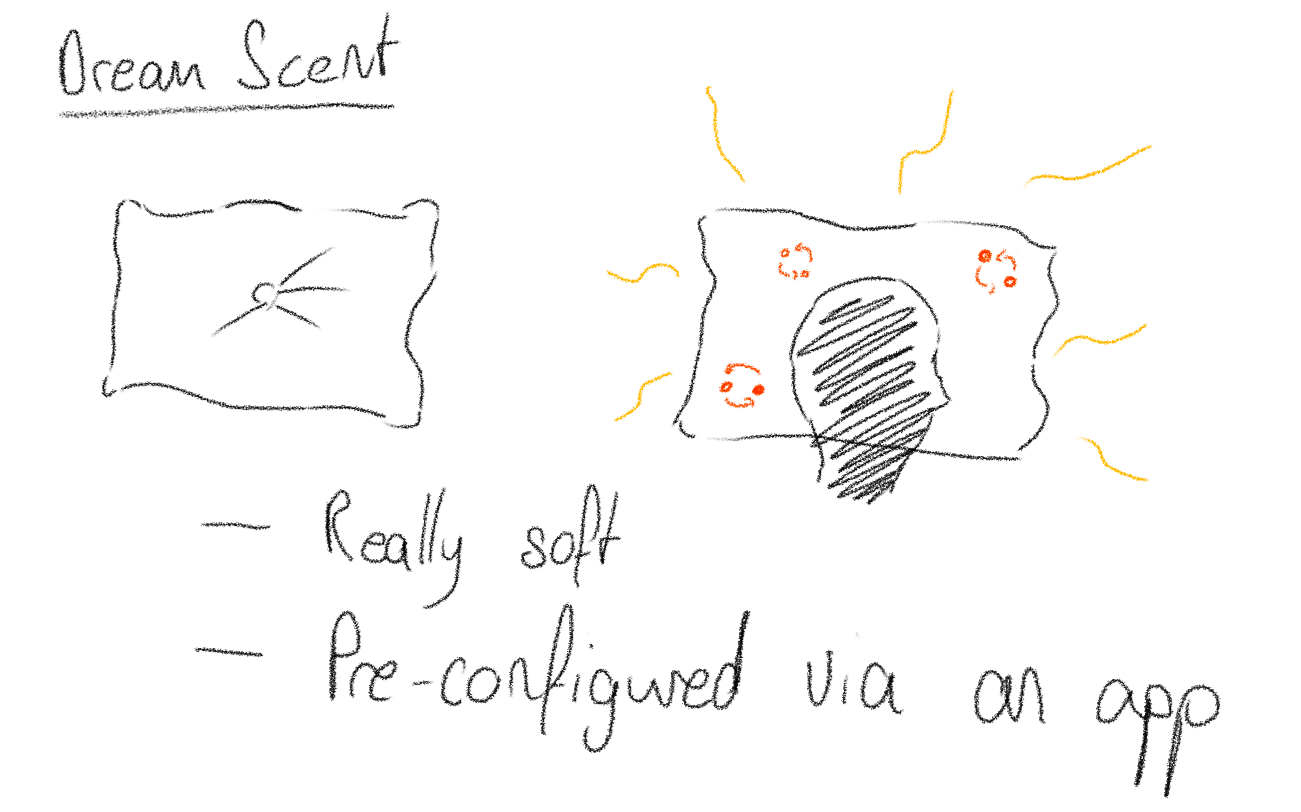 Dream Scent
— Really soft
— Pre-configured via an app